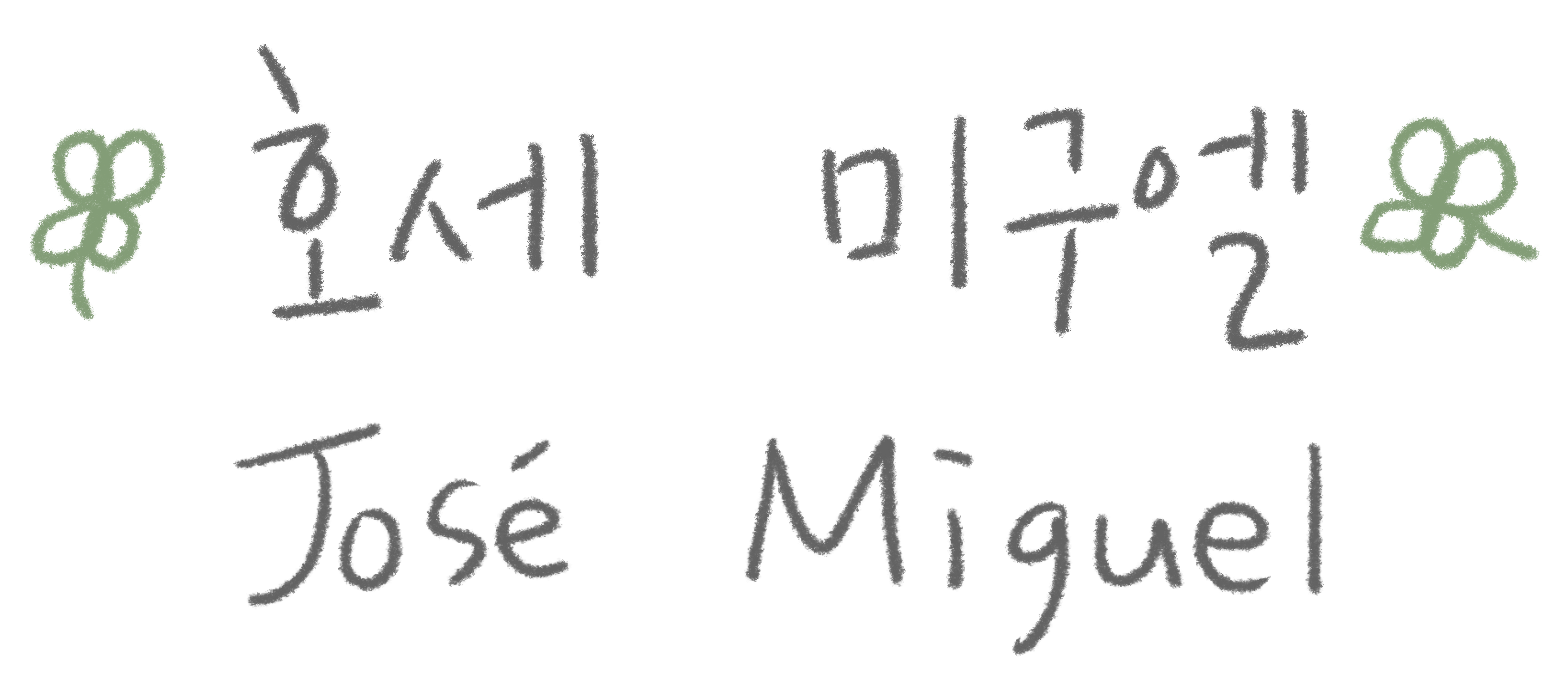 호세 미구엘
José Miguel